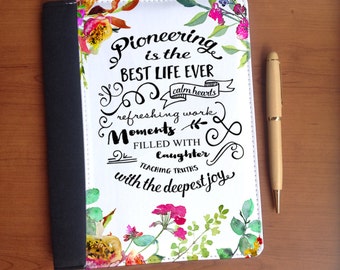 Pioneering
is the
BEST LIFE EVER
calm hearts
refreshing work
Moments
FILLED WITH
Laughter
TEACHING TRUTHS
with the deepest joy